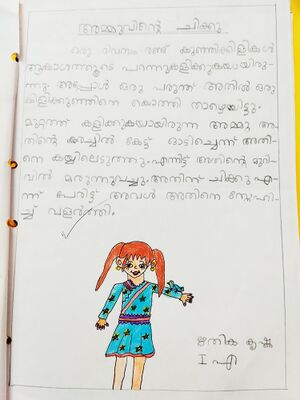 അമ്മുവിന്റെ ചിക്കു
ഒരു ദിവസം രണ്ട് കുഞ്ഞിക്കിളികൾ
ആകാശത്തൂടെ പറന്നുകളിക്കുകയായിരു
ന്നു അപ്പോൾ ഒരു പരുന്ത് അതിൽ ഒരു
കിളിക്കുഞ്ഞിനെ കൊത്തി താഴെയിട്ടു.
മുറ്റത്ത് കളിക്കുകയായിരുന്ന അമ്മു അ
തിന്റെ കരച്ചിൽ കേട്ട് ഓടിച്ചെന്ന് അതി
നെ കയ്യിലെടുത്തു. എന്നിട്ട് അതിന്റെ മുറി
വിൽ മരുന്നുവച്ചു. അതിന് ചിക്കു എ
ന്ന് പേരിട്ട് അവൾ അതിനെ സ്നേഹി
ച്ച് വളർത്തി.
ഋതിക കൃഷ്ണ
I എ